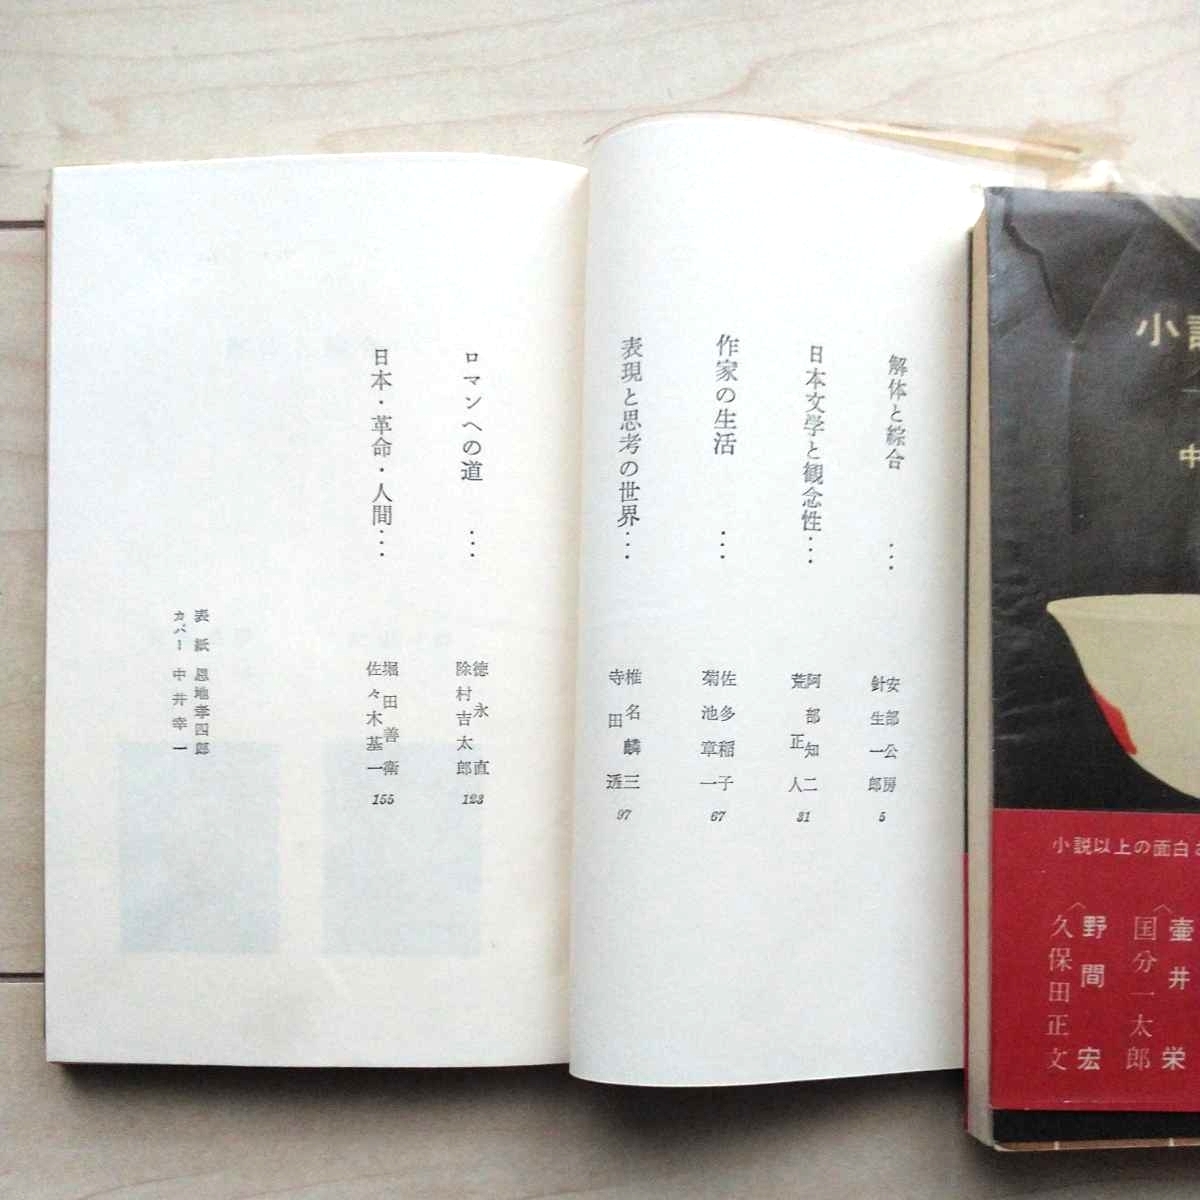 解体と綜合 ･･･ 安部公房
針生一郎 5
日本文学と観念性･･･ 阿部知二
荒正人 31
作家の生活 ･･･ 佐多稲子
菊池章一 67
表現と思考の世界･･･ 椎名麟三
寺田透 97
ロマンへの道 ･･･ 徳永直
除村吉太郎 123
日本・革命・人間･･･ 堀田善衛
佐々木基一 155
表紙 恩地孝四郎
カバー 中井幸一
小説
中
小説以上の面白さ
壷井栄
〈国分一太郎
野間宏
〈久保田正文